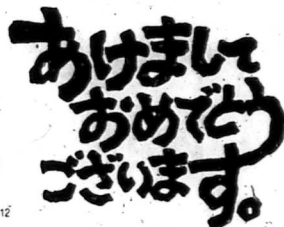 あけまして
おめでとう
ございます。
12